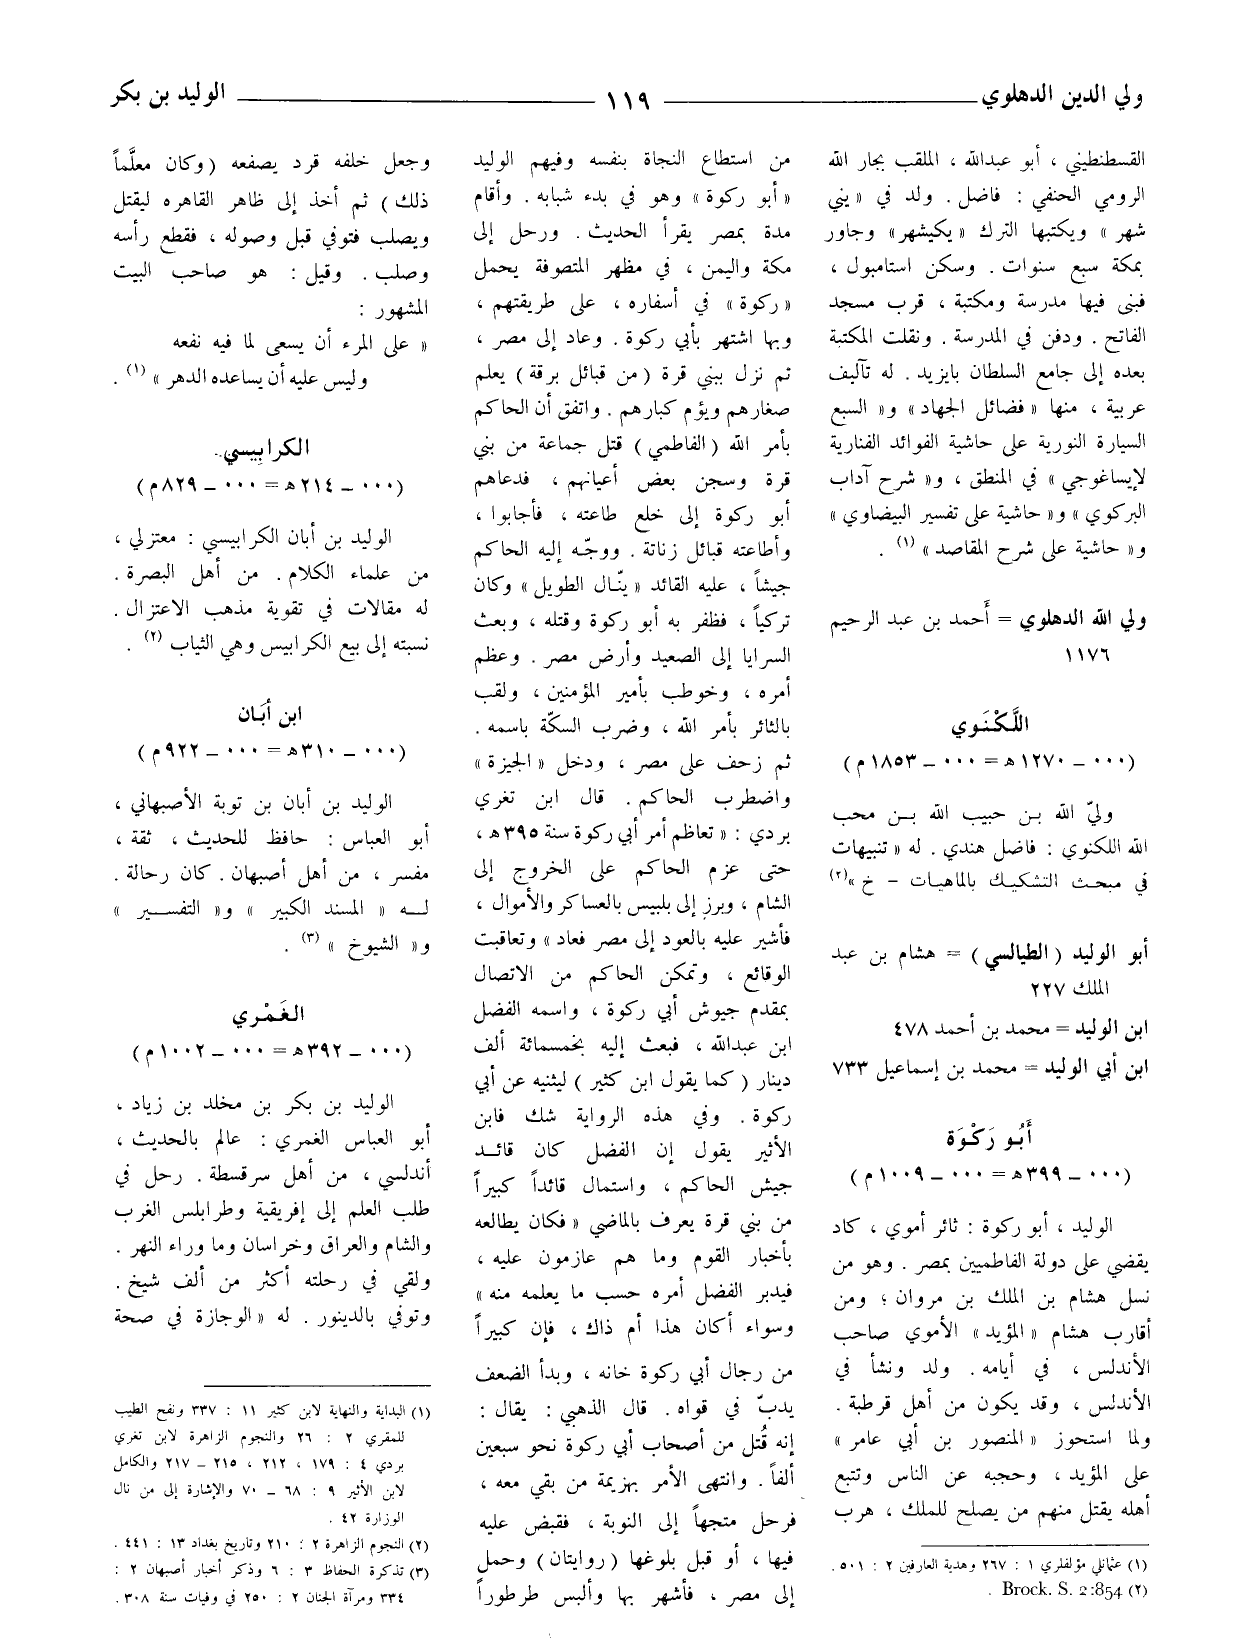 ولي الدين الدهلوي ١١٩ الوليد بن بكر
القسطنطيني ، أبو عبدالله ، الملقب بجار الله
الرومي الحنفي : فاضل . ولد في « يني
شهر » ويكتبها الترك « يكيشهر » وجاور
بمكة سبع سنوات . وسكن استامبول ،
فبنى فيها مدرسة ومكتبة ، قرب مسجد
الفاتح . ودفن في المدرسة . ونقلت المكتبة
بعده إلى جامع السلطان بايزيد . له تآليف
عربية ، منها « فضائل الجهاد » و« السبع
السيارة النورية على حاشية الفوائد الفنارية
لإيساغوجي » في المنطق ، و« شرح آداب
البركوي » و« حاشية على تفسير البيضاوي »
و« حاشية على شرح المقاصد » (١) .
ولي الله الدهلوي = أَحمد بن عبد الرحيم
١١٧٦
اللَّكْنَوي
(٠٠٠ – ١٢٧٠ ه = ٠٠٠ – ١٨٥٣ م)
وليّ الله بن حبيب الله بن محب
الله اللكنوي : فاضل هندي . له « تنبيهات
في مبحث التشكيك بالماهيات – خ »(٢)
أبو الوليد ( الطيالسي ) = هشام بن عبد
الملك ٢٢٧
ابن الوليد = محمد بن أحمد ٤٧٨
ابن أبي الوليد = محمد بن إسماعيل ٧٣٣
أَبُو رَكْوَة
(٠٠٠ – ٣٩٩ه = ٠٠٠ – ١٠٠٩ م)
الوليد ، أبو ركوة : ثائر أموي ، كاد
يقضي على دولة الفاطميين بمصر . وهو من
نسل هشام بن الملك بن مروان ؛ ومن
أقارب هشام « المؤيد » الأموي صاحب
الأندلس ، في أيامه . ولد ونشأ في
الأندلس ، وقد يكون من أهل قرطبة .
ولما استحوز « المنصور بن أبي عامر »
على المؤيد ، وحجبه عن الناس وتتبع
أهله يقتل منهم من يصلح للملك ، هرب
(١) عثمانلي مؤلفلري ١ : ٢٦٧ وهدية العارفين ٢ : ٥٠١ .
(٢) Brock. S. 2:854 .
من استطاع النجاة بنفسه وفيهم الوليد
« أبو ركوة » وهو في بدء شبابه . وأقام
مدة بمصر يقرأ الحديث . ورحل إلى
مكة واليمن ، في مظهر المتصوفة يحمل
« ركوة » في أسفاره ، على طريقتهم ،
وبها اشتهر بأبي ركوة . وعاد إلى مصر ،
ثم نزل ببني قرة ( من قبائل برقة ) يعلم
صغارهم ويؤم كبارهم . واتفق أن الحاكم
بأمر الله ( الفاطمي ) قتل جماعة من بني
قرة وسجن بعض أعيانهم ، فدعاهم
أبو ركوة إلى خلع طاعته ، فأجابوا ،
وأطاعته قبائل زناتة . ووجّه إليه الحاكم
جيشاً ، عليه القائد « ينّال الطويل » وكان
تركياً ، فظفر به أبو ركوة وقتله ، وبعث
السرايا إلى الصعيد وأرض مصر . وعظم
أمره ، وخوطب بأمير المؤمنين ، ولقب
بالثائر بأمر الله ، وضرب السكّة باسمه .
ثم زحف على مصر ، ودخل « الجيزة »
واضطرب الحاكم . قال ابن تغري
بردي : « تعاظم أمر أبي ركوة سنة ٣٩٥ه ،
حتى عزم الحاكم على الخروج إلى
الشام ، وبرز إلى بلبيس بالعساكر والأموال ،
فأشير عليه بالعود إلى مصر فعاد » وتعاقبت
الوقائع ، وتمكن الحاكم من الاتصال
بمقدم جيوش أبي ركوة ، واسمه الفضل
ابن عبدالله ، فبعث إليه بخمسمائة ألف
دينار ( كما يقول ابن كثير ) ليثنيه عن أبي
ركوة . وفي هذه الرواية شك فابن
الأثير يقول إن الفضل كان قائد
جيش الحاكم ، واستمال قائداً كبيراً
من بني قرة يعرف بالماضي « فكان يطالعه
بأخبار القوم وما هم عازمون عليه ،
فيدبر الفضل أمره حسب ما يعلمه منه »
وسواء أكان هذا أم ذاك ، فإن كبيراً
من رجال أبي ركوة خانه ، وبدأ الضعف
يدبّ في قواه . قال الذهبي : يقال :
إنه قُتل من أصحاب أبي ركوة نحو سبعين
ألفاً . وانتهى الأمر بهزيمة من بقي معه ،
فرحل متجهاً إلى النوبة ، فقبض عليه
فيها ، أو قبل بلوغها ( روايتان ) وحمل
إلى مصر ، فأشهر بها وألبس طرطوراً
وجعل خلفه قرد يصفعه ( وكان معلَّماً
ذلك ) ثم أخذ إلى ظاهر القاهره ليقتل
ويصلب فتوفي قبل وصوله ، فقطع رأسه
وصلب . وقيل : هو صاحب البيت
المشهور :
« على المرء أن يسعى لما فيه نفعه
وليس عليه أن يساعده الدهر » (١) .
الكرابِيسي
(٠٠٠ – ٢١٤ه = ٠٠٠ – ٨٢٩م)
الوليد بن أبان الكرابيسي : معتزلي ،
من علماء الكلام . من أهل البصرة .
له مقالات في تقوية مذهب الاعتزال .
نسبته إلى بيع الكرابيس وهي الثياب (٢) .
ابن أبَان
(٠٠٠ – ٣١٠ه = ٠٠٠ – ٩٢٢م)
الوليد بن أبان بن توبة الأصبهاني ،
أبو العباس : حافظ للحديث ، ثقة ،
مفسر ، من أهل أصبهان . كان رحالة .
له « المسند الكبير » و« التفسير »
و« الشيوخ » (٣) .
الغَمْري
(٠٠٠ – ٣٩٢ه = ٠٠٠ – ١٠٠٢م)
الوليد بن بكر بن مخلد بن زياد ،
أبو العباس الغمري : عالم بالحديث ،
أندلسي ، من أهل سرقسطة . رحل في
طلب العلم إلى إفريقية وطرابلس الغرب
والشام والعراق وخراسان وما وراء النهر .
ولقي في رحلته أكثر من ألف شيخ .
وتوفي بالدينور . له « الوجازة في صحة
(١) البداية والنهاية لابن كثير ١١ : ٣٣٧ ونفح الطيب
للمقري ٢ : ٢٦ والنجوم الزاهرة لابن تغري
بردي ٤ : ١٧٩ ، ٢١٢ ، ٢١٥ – ٢١٧ والكامل
لابن الأثير ٩ : ٦٨ – ٧٠ والإشارة إلى من نال
الوزارة ٤٢ .
(٢) النجوم الزاهرة ٢ : ٢١٠ وتاريخ بغداد ١٣ : ٤٤١ .
(٣) تذكرة الحفاظ ٣ : ٦ وذكر أخبار أصبهان ٢ :
٣٣٤ ومرآة الجنان ٢ : ٢٥٠ في وفيات سنة ٣٠٨ .